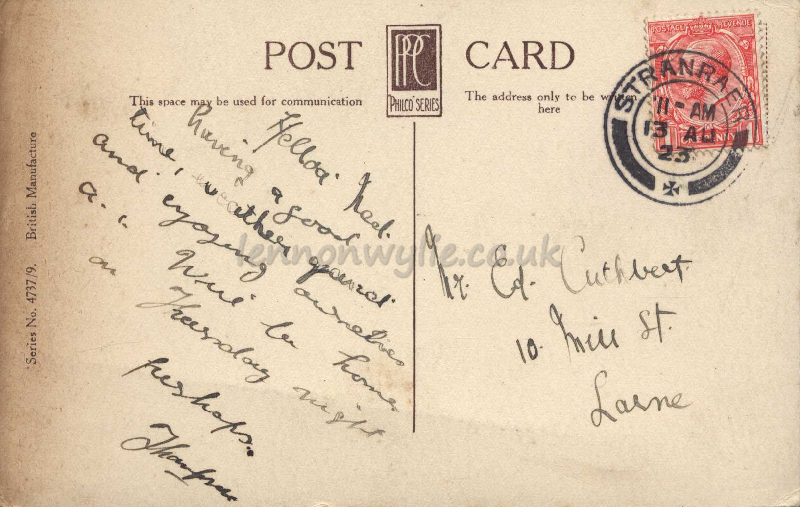 POST CARD
PPC
PHILCO SERIES
This space may be used for communication
The address only to be written here
Series No. 4737/9. British Manufacture
POSTAGE REVENUE
STRANRAER
11 - AM
13 AU
23
Helloa Ned.
having a good
time, weather grand
and enjoying ourselves
a. 1. Will be home
on Thursday night
perhaps.
Thompson
Mr. Ed. Cuthbert
10. Mill St.
Larne
lennonwylie.co.uk